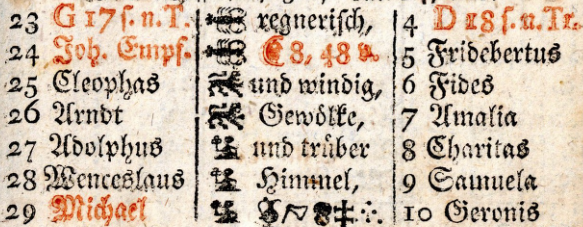 23 G 17 s. n. T. regnerisch, 4 D 18 s. n. Tr.
24 Joh. Empf. 8, 48 v. 5 Fridebertus
25 Cleophas und windig, 6 Fides
26 Arndt Gewölke, 7 Amalia
27 Adolphus und trüber 8 Charitas
28 Wenceslaus Himmel, 9 Samuela
29 Michael 10 Geronis